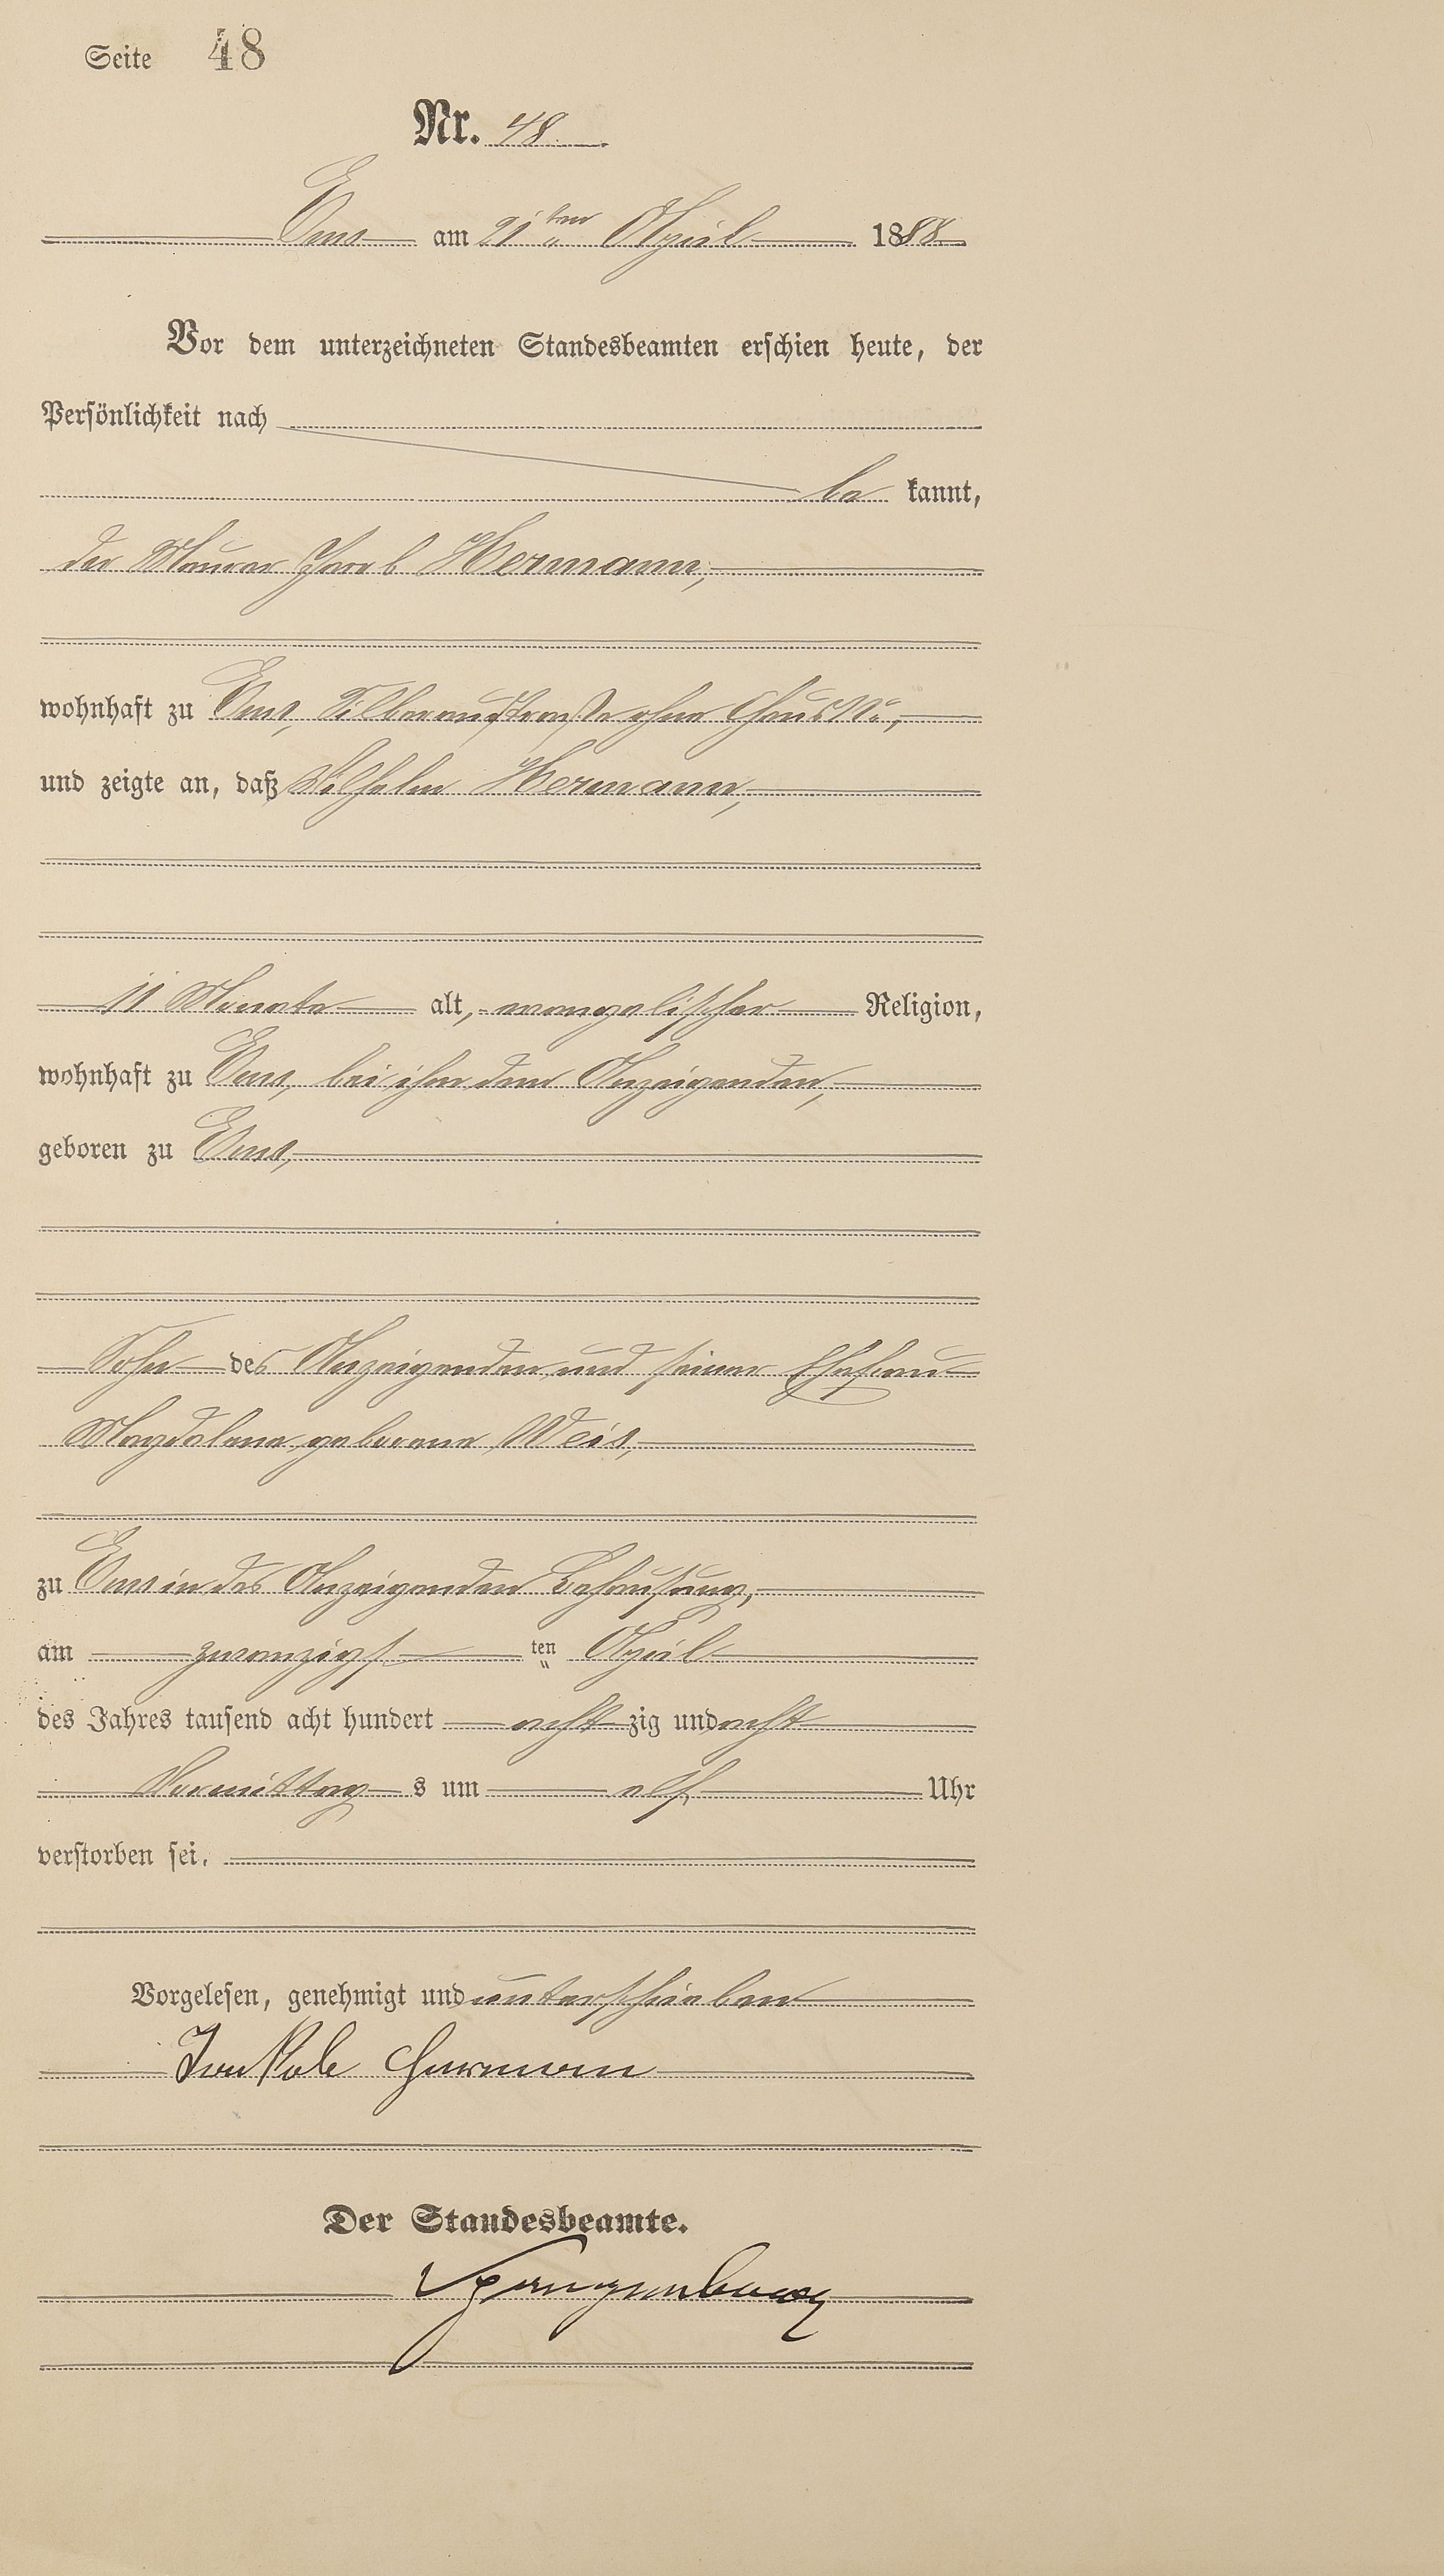 Seite 48
Nr. 48
Ems am 21ten April 1888
Vor dem unterzeichneten Standesbeamten erschien heute, der
Persönlichkeit nach
be kannt,
der Maurer Jacob Hermann,
wohnhaft zu Ems, Silberaustraße ohne Haus No,
und zeigte an, daß Wilhelm Hermann,
11 Monate alt, evangelischer Religion,
wohnhaft zu Ems, bei ihm dem Anzeigenden,
geboren zu Ems,
Sohn des Anzeigenden und seiner Ehefrau
Magdalena, geborene Weis,
zu Ems in des Anzeigenden Behausung,
am zwanzigs ten April
des Jahres tausend acht hundert acht zig und acht
Vormittag s um elf Uhr
verstorben sei.
Vorgelesen, genehmigt und unterschrieben
Jackob Hermann
Der Standesbeamte.